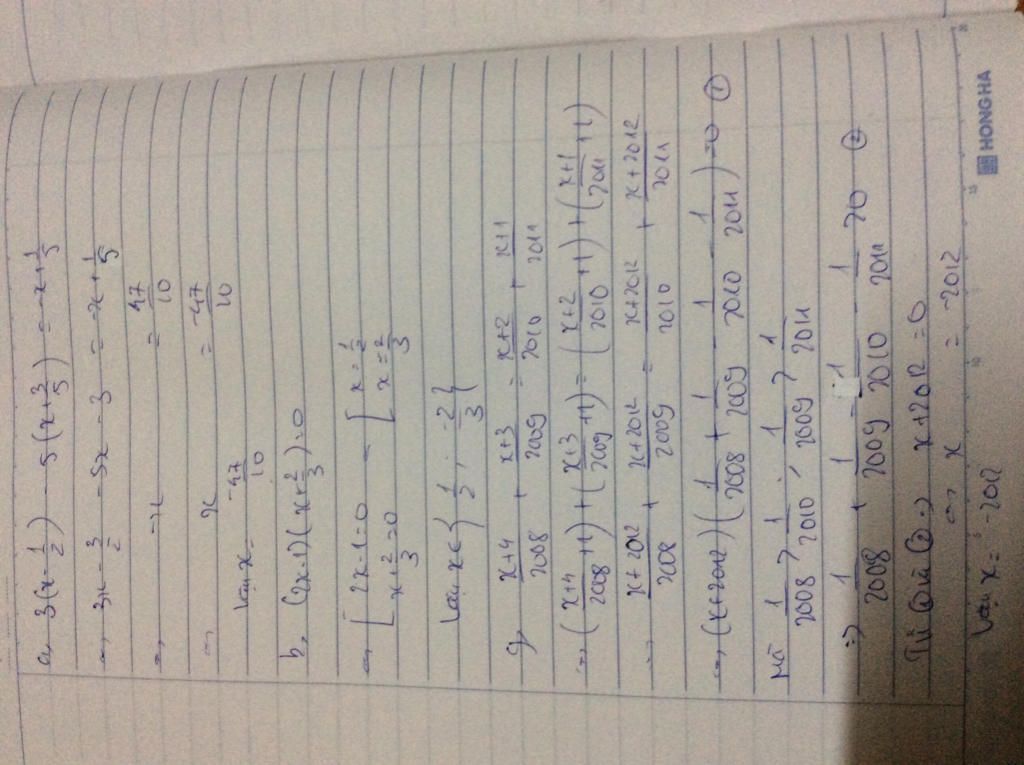 a, 3(x - 1/2) - 5(x + 3/5) = -x + 1/5
3x - 3/2 - 5x - 3 = -x + 1/5
-x = 47/10
x = -47/10
Vậy x = -47/10
b, (2x-1)(x + 2/3) = 0
[ 2x - 1 = 0 [ x = 1/2
[ x + 2/3 = 0 [ x = -2/3
Vậy x ∈ { 1/2 ; -2/3 }
x+4/2008 + x+3/2009 = x+2/2010 + x+1/2011
=> (x+4/2008 + 1) + (x+3/2009 + 1) = (x+2/2010 + 1) + (x+1/2011 + 1)
=> x+2012/2008 + x+2012/2009 = x+2012/2010 + x+2012/2011
(x+2012)(1/2008 + 1/2009 - 1/2010 - 1/2011) = 0 ①
Mà 1/2008 > 1/2010 ; 1/2009 > 1/2011
=> 1/2008 + 1/2009 - 1/2010 - 1/2011 > 0 ②
Từ ① và ② => x + 2012 = 0
x = -2012
Vậy x = -2012
HONG HA